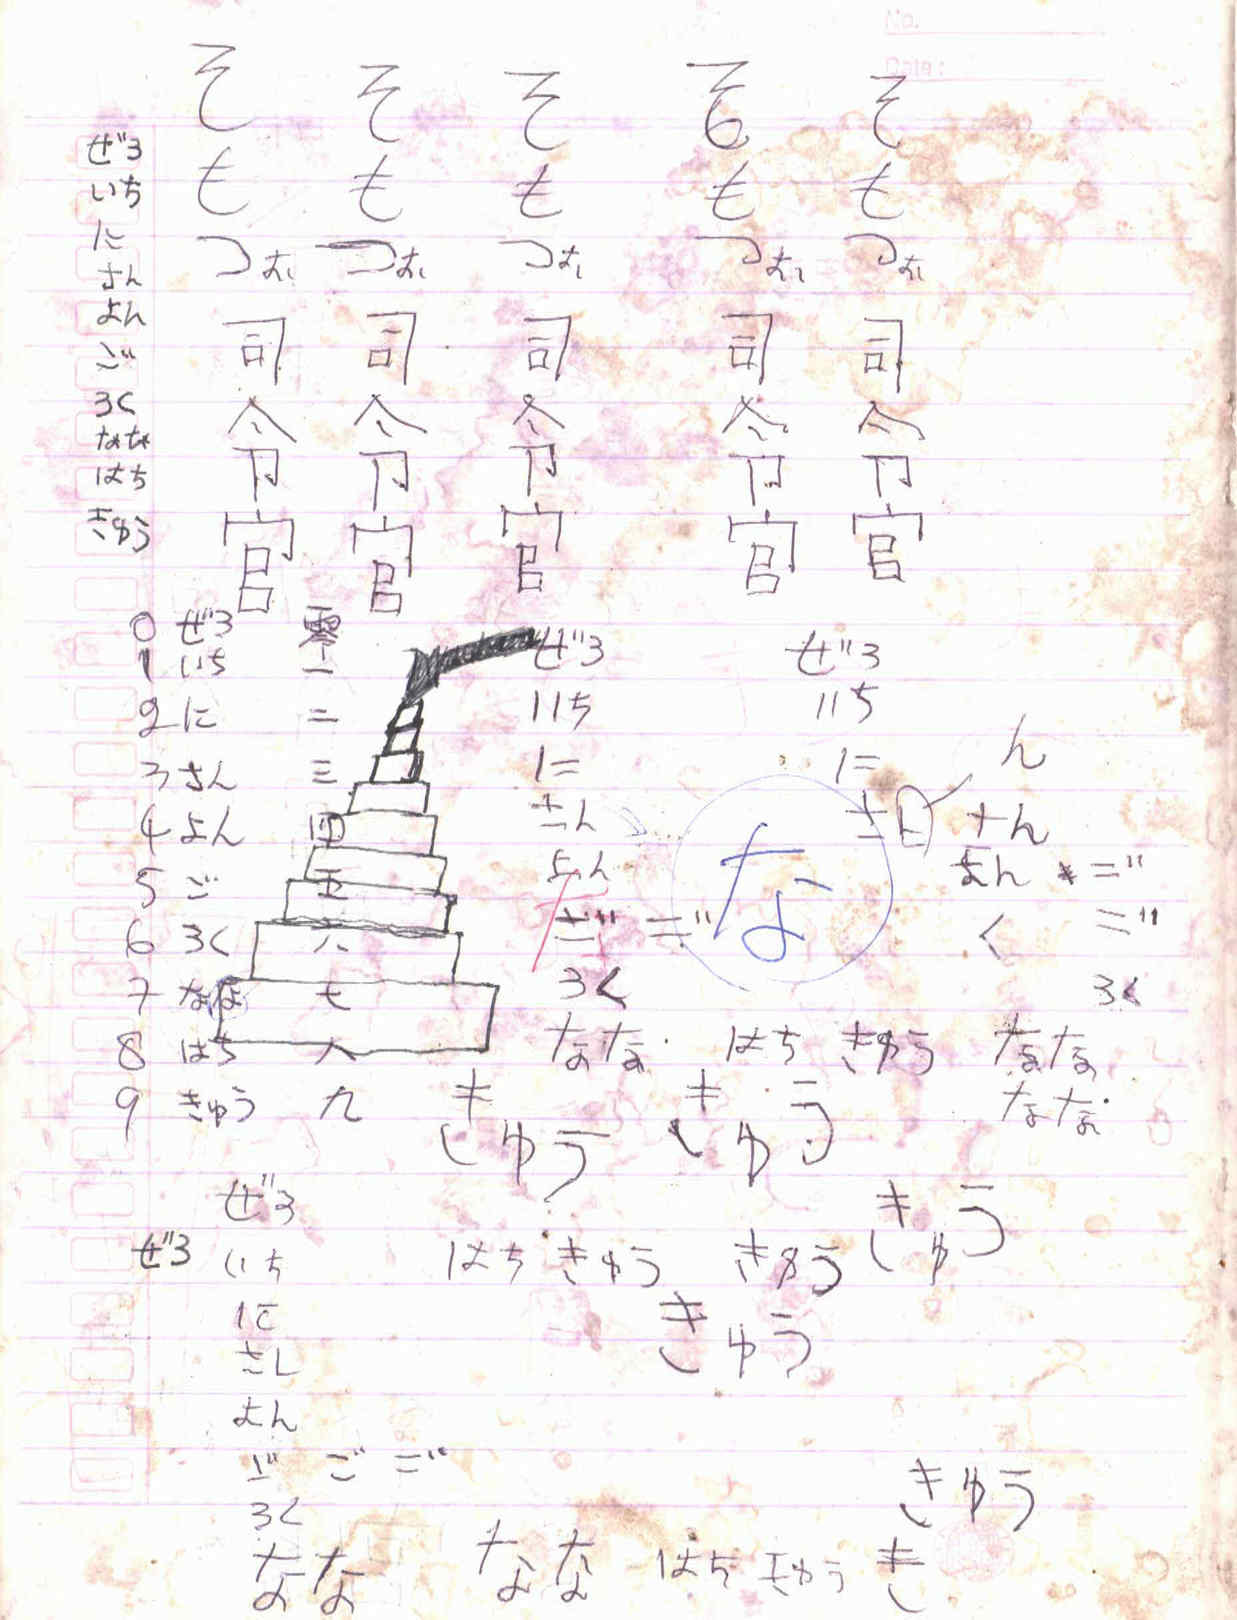 No.
Date:
そ そ そ そ そ
も も も も も
つ つ つ つ つ
む む む む む
司 司 司 司 司
令 令 令 令 令
官 官 官 官 官
ぜろ
いち
に
さん
よん
ご
ろく
なな
はち
きゅう
0 ぜろ 零 ぜろ ぜろ
1 いち 一 いち いち
2 に 二 に に ん
3 さん 三 さん さん
4 よん 四 よん な よん ご
5 ご 五 ご ご く ご
6 ろく 六 ろく ろく
7 なな 七 なな はち きゅう なな
8 はち 八 なな
9 きゅう 九 きゅう きゅう
ぜろ きゅう
ぜろ いち はち きゅう きゅう
に きゅう
さん
よん
ご ご ご きゅう
ろく
なな なな はち きゅう き